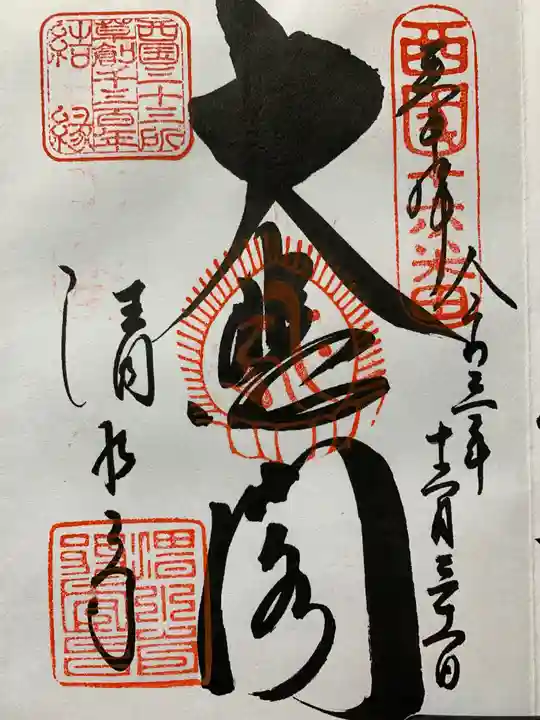 奉拝
令和三年十二月三十一日
大悲閣
西国三十三所
草創千三百年
結縁
清水寺